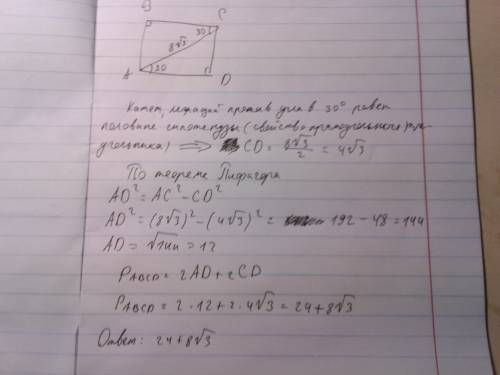 B
C
30
8√3
A
30
D
Катет, лежащий против угла в 30° равен
половине гипотенузы (свойство прямоугольного тре-
угольника) ⇒ CD = 8√3/2 = 4√3
По теореме Пифагора
AD² = AC² - CD²
AD² = (8√3)² - (4√3)² = 192 - 48 = 144
AD = √144 = 12
P ABCD = 2AD + 2CD
P ABCD = 2 · 12 + 2 · 4√3 = 24 + 8√3
Ответ: 24 + 8√3